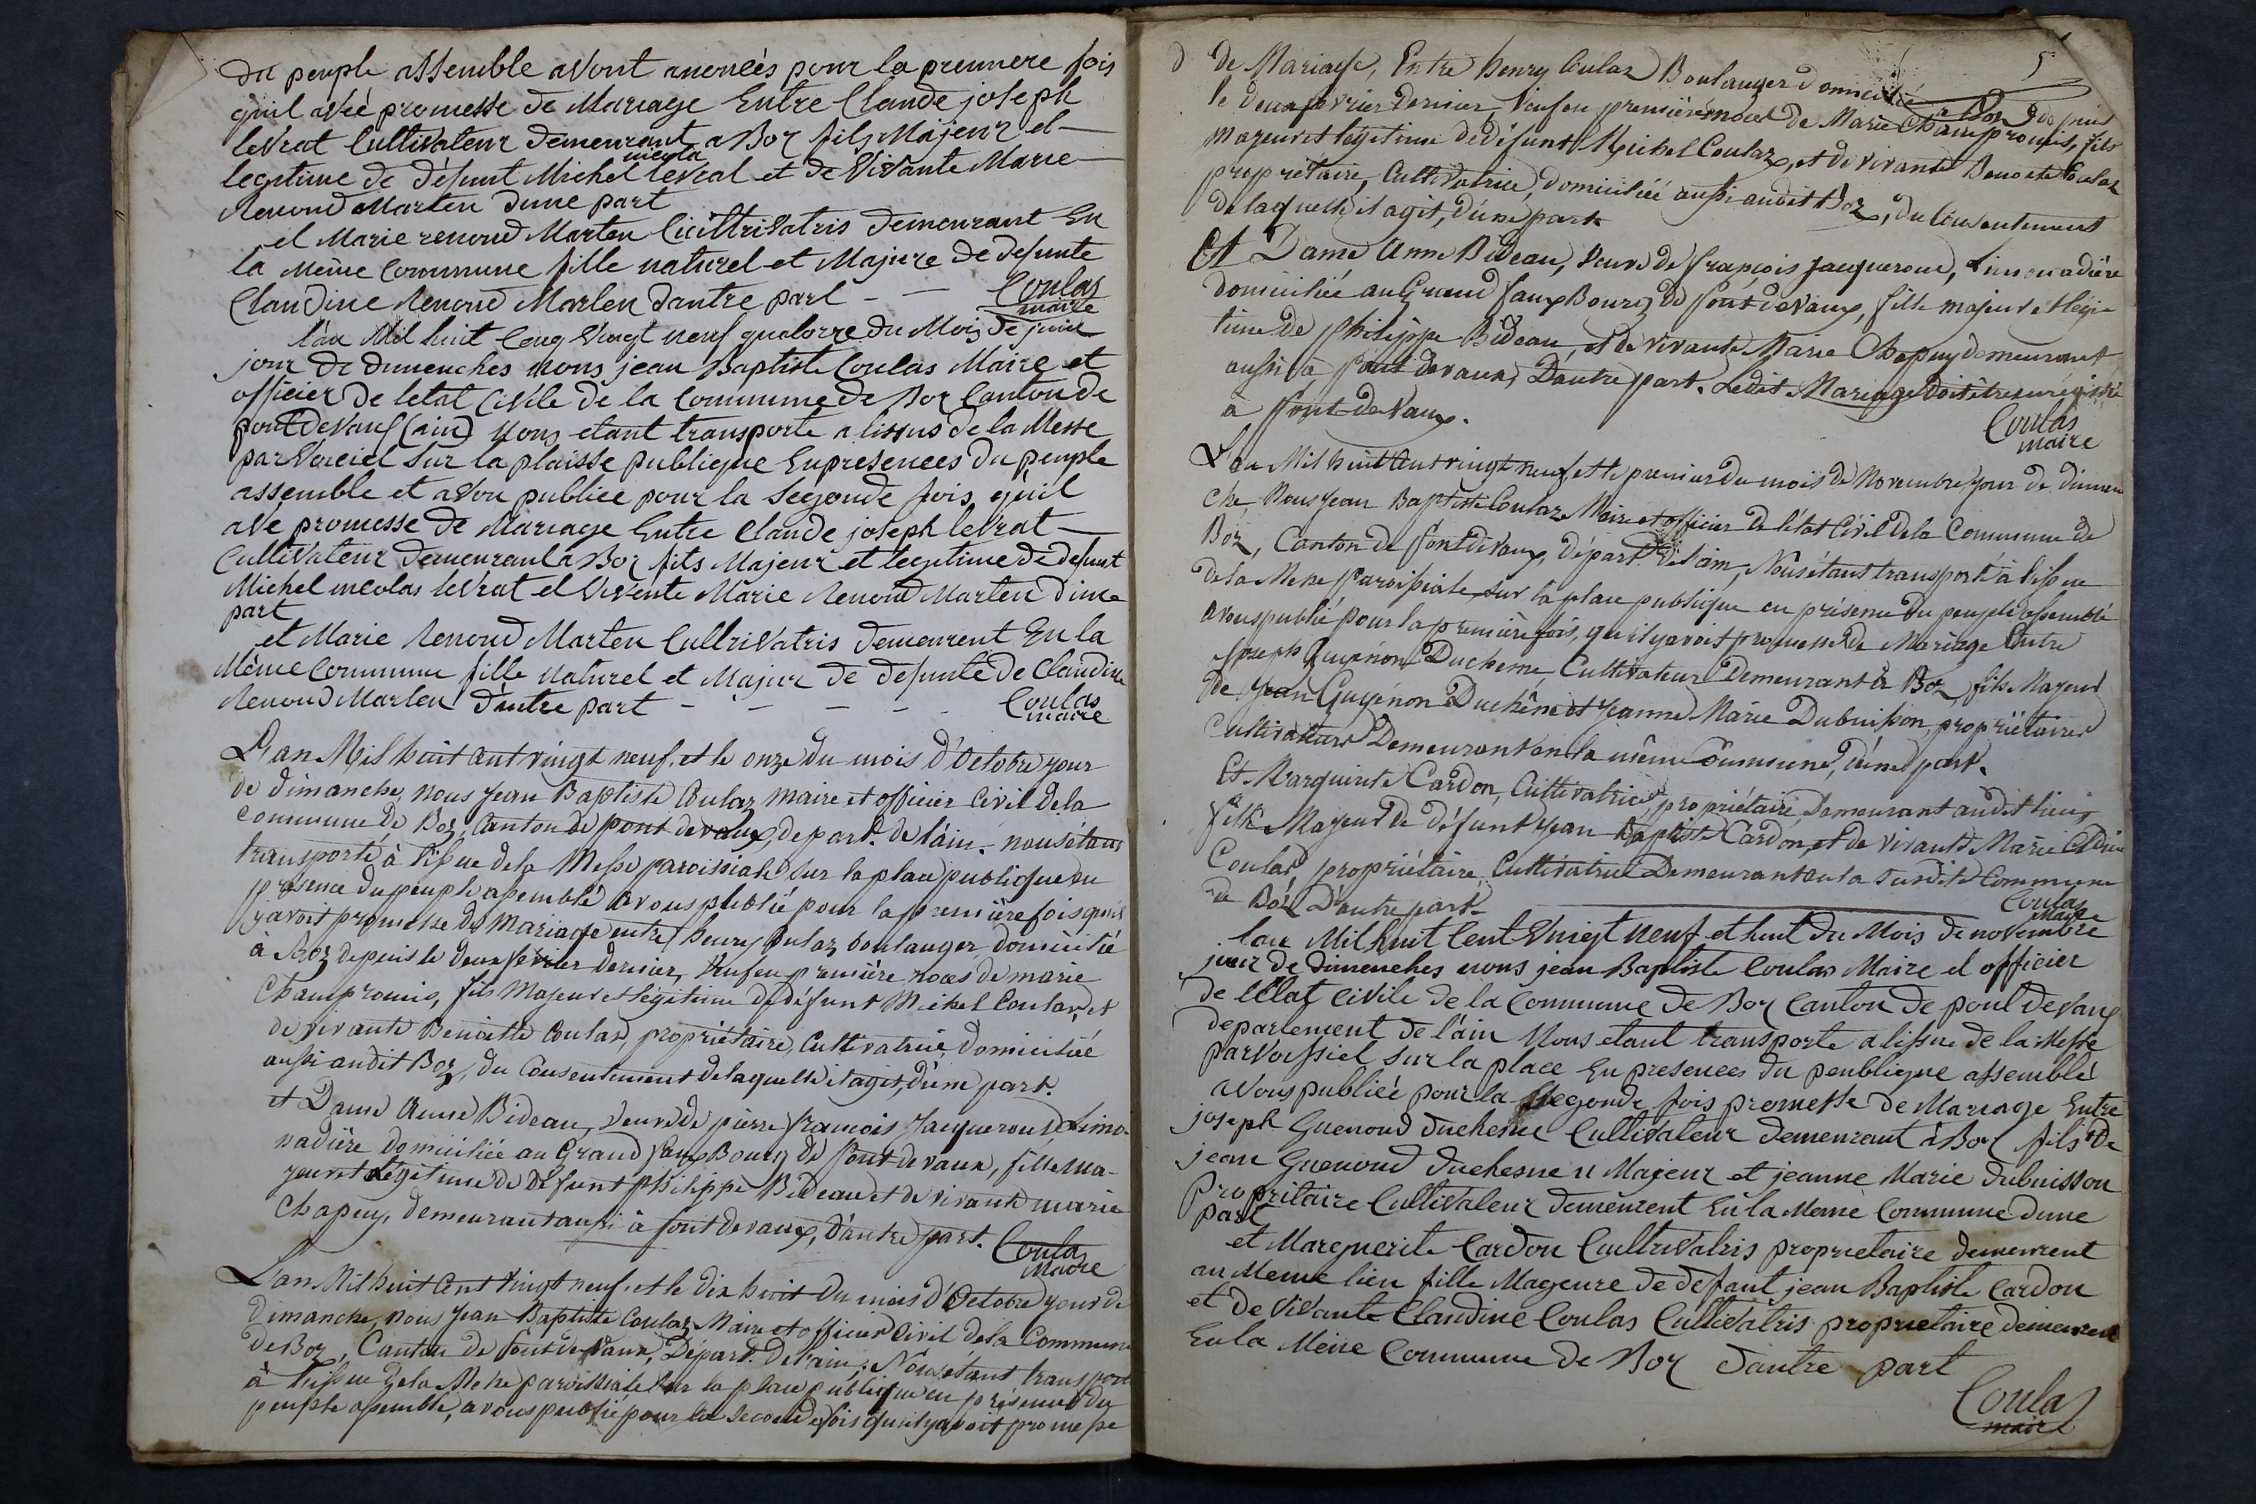 du peuple assemble avont anoncées pour la premiere fois
quil avéé promesse de Mariage Entre Claude joseph
levrat Cultivateur demeurant a Boz fils Majeur et
nicola
legitime de défunt Michel levrat et de Vivante Marie
Renoud Marten dune part
et Marie renoud Marten Cultrivatris demeurant En
la même Commune fille naturel et Majure de defunte
Claudine Renoud Marten dautre part
Coulas
maire
l'an Mil huit Cenq Vingt neuf quatorze du Mois de juin
jour de dimenches Nous jean Baptiste Coulas Maire et
officier de letat Civile de la Commune de Boz Canton de
pont de Vaux (ain) Nous etant transporte a lissus de la Messe
parVoiciel sur la plaisse publique En presences du peuple
assemble et avon publiée pour la Segonde fois quil
avé promesse de Mariage Entre Claude joseph levrat
Cultivateur demeurant a Boz fils Majeur et legitime de defunt
Michel nicolas levrat et Vivente Marie Renoud Marten dune
part
et Marie Renoud Marten Cultrivatris demeurent En la
Même Commune fille Naturel et Majur de defunte de Claudine
Renoud Marten dautre part
Coulas
maire
L'an Mil huit cent vingt neuf, et le onze du mois d'Octobre jour
de dimanche, nous Jean Baptiste Coulaz maire et officier Civil de la
Commune de Boz, Canton de pont de vaux, depart. de l'ain. nous étant
transporté à l'issue de la Messe paroissiale sur la place publique en
présence du peuple assemblé avons publié pour la première fois qu'il
y avoit promesse de Mariage entre henry Coulaz boulanger, domicilié
à Boz depuis le deux février dernier, Veuf en première noces de marie
Champromis, fils Majeur et légitime de défunt Michel Coulas, et
de vivante Benoitte Coulas, propriétaire, Cultivatrice, domiciliée
aussi audit Boz, du Consentement de laquelle il agit, d'une part.
et Dame Anne Bideau, Veuve de pierre françois Jacqueroud, Limo-
nadière domiciliée au Grand faux Bourg de Pont de vaux, fille ma-
jeur et légitime de défunt Philippe Bideau et de vivante marie
Chapuy, demeurant aussi à Pont de vaux, d'autre part.
Coulas
Maire
L'an Mil huit Cent Vingt neuf, et le dix huit du mois d'Octobre jour de
Dimanche, nous Jean Baptiste Coulaz Maire et officier Civil de la Commune
de Boz, Canton de Pont de Vaux, Départ. de l'ain. Nous étant transporté
à l'issue de la Messe paroissiale sur la place publique en présence du
peuple assemblé, avons publié pour la seconde fois qu'il y avoit promesse
5
de Mariage, Entre henry Coulaz Boulanger domicilié à Boz depuis
le deux février dernier, Veuf en première noces de Marie Champromis, fils
majeur et légitime de défunt Michel Coulaz, et de vivante Benoite Coulaz
propriétaire, Cultivatrice, domiciliée aussi audit Boz, du Consentement
de laquelle il agit, d'une part.
Et Dame Anne Bideau, Veuve de françois Jacqueroud, Limonadière
domiciliée au Grand faux Bourg de Pont de Vaux, fille majeur et légi-
time de Philippe Bideau, et de vivante Marie Chapuy demeurant
aussi à Pont de vaux, D'autre part. Ledit Mariage doit être enregistré
à Pont-de-Vaux.
Coulas
maire
L'an Mil huit Cent vingt neuf et le premier du mois de Novembre jour de diman-
che, Nous Jean Baptiste Coulaz, Maire et officier de l'état Civil de la Commune de
Boz, Canton de Pont de Vaux, Départ. de l'ain, Nous étant transporté à l'issue
de la Messe paroissiale, sur la place publique en présence du peuple assemblé
avons publié pour la première fois, qu'il y avoit promesse de Mariage Entre
Joseph Guyenon Duchesne, Cultivateur Demeurant à Boz, fils Majeur
de Jean Guyénon Duchêne et Jeanne Marie Dubuisson, propriétaires
Cultivateurs Demeurant en la même Commune, d'une part.
Et Marguerite Cardon, Cultivatrice, propriétaire, Demeurant audit lieu,
fille Majeur de défunt Jean Baptiste Cardon, et de vivante Marie Cldine
Coulas, propriétaire, Cultivatrice Demeurant en la susdite Commune
de Boz D'autre part.
Coulas
Maire
lan Mil huit Cent Vingt Neuf et huit du Mois de novembre
jour de Dimenches nous jean Baptiste Coulas Maire et officier
de l'Etat Civile de la Commune de Boz Canton de pont de Vaux
departement de l'ain Nous etant transporte a lissue de la Messe
parVoissiel sur la place En presences du peublique assemblé
avons publiée pour la Segonde fois promesse de Mariage Entre
joseph Guenoud duchesne Cultivateur demeurant à Boz fils de
jean Guenoud duchesne Majeur et jeanne Marie dubuisson
propritaire Cultivateur demeurent En la Même Commune dune
part
et Marguerite Cardon Cultrivatris proprietaire demeurent
au Meme lieu fille Mageure de défunt jean Baptiste Cardon
et de Vivante Claudine Coulas Cultivatris proprietaire demeurent
En la Même Commune de Boz dautre part
Coulas
maire